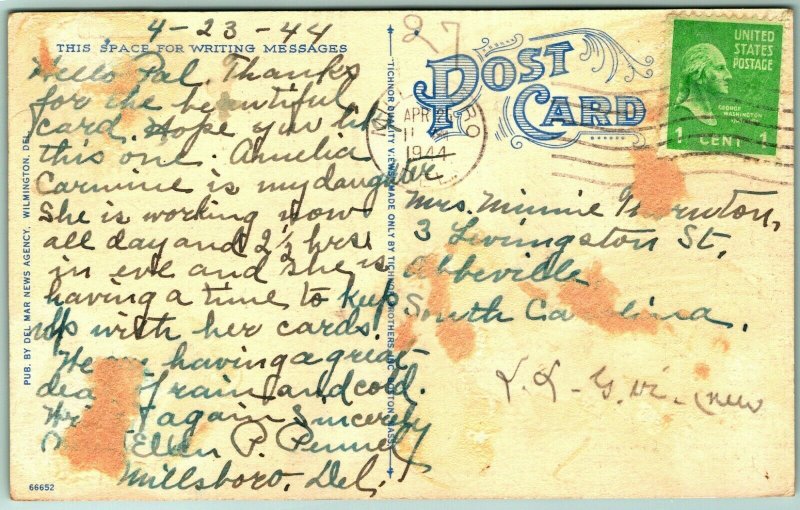 4-23-44
THIS SPACE FOR WRITING MESSAGES
Hello Pal. Thanks
for the beautiful
card. Hope you like
this one. Amelia
Carmine is my daughter
She is working now
all day and 2½ hrs
in eve and she is
having a time to keep
up with her cards.
We are having a great
deal of rain and cold.
Write again Sincerely
Ellen P. Penne
Millsboro, Del.
66652
PUB. BY DEL MAR NEWS AGENCY, WILMINGTON, DEL.
TICHNOR QUALITY VIEWS MADE ONLY BY TICHNOR BROTHERS INC. BOSTON MASS.
27
POST
CARD
APR
1944
UNITED
STATES
POSTAGE
GEORGE
WASHINGTON
1 CENT 1
Mrs. Minnie Thornton,
3 Livingston St,
Abbeville
South Carolina.